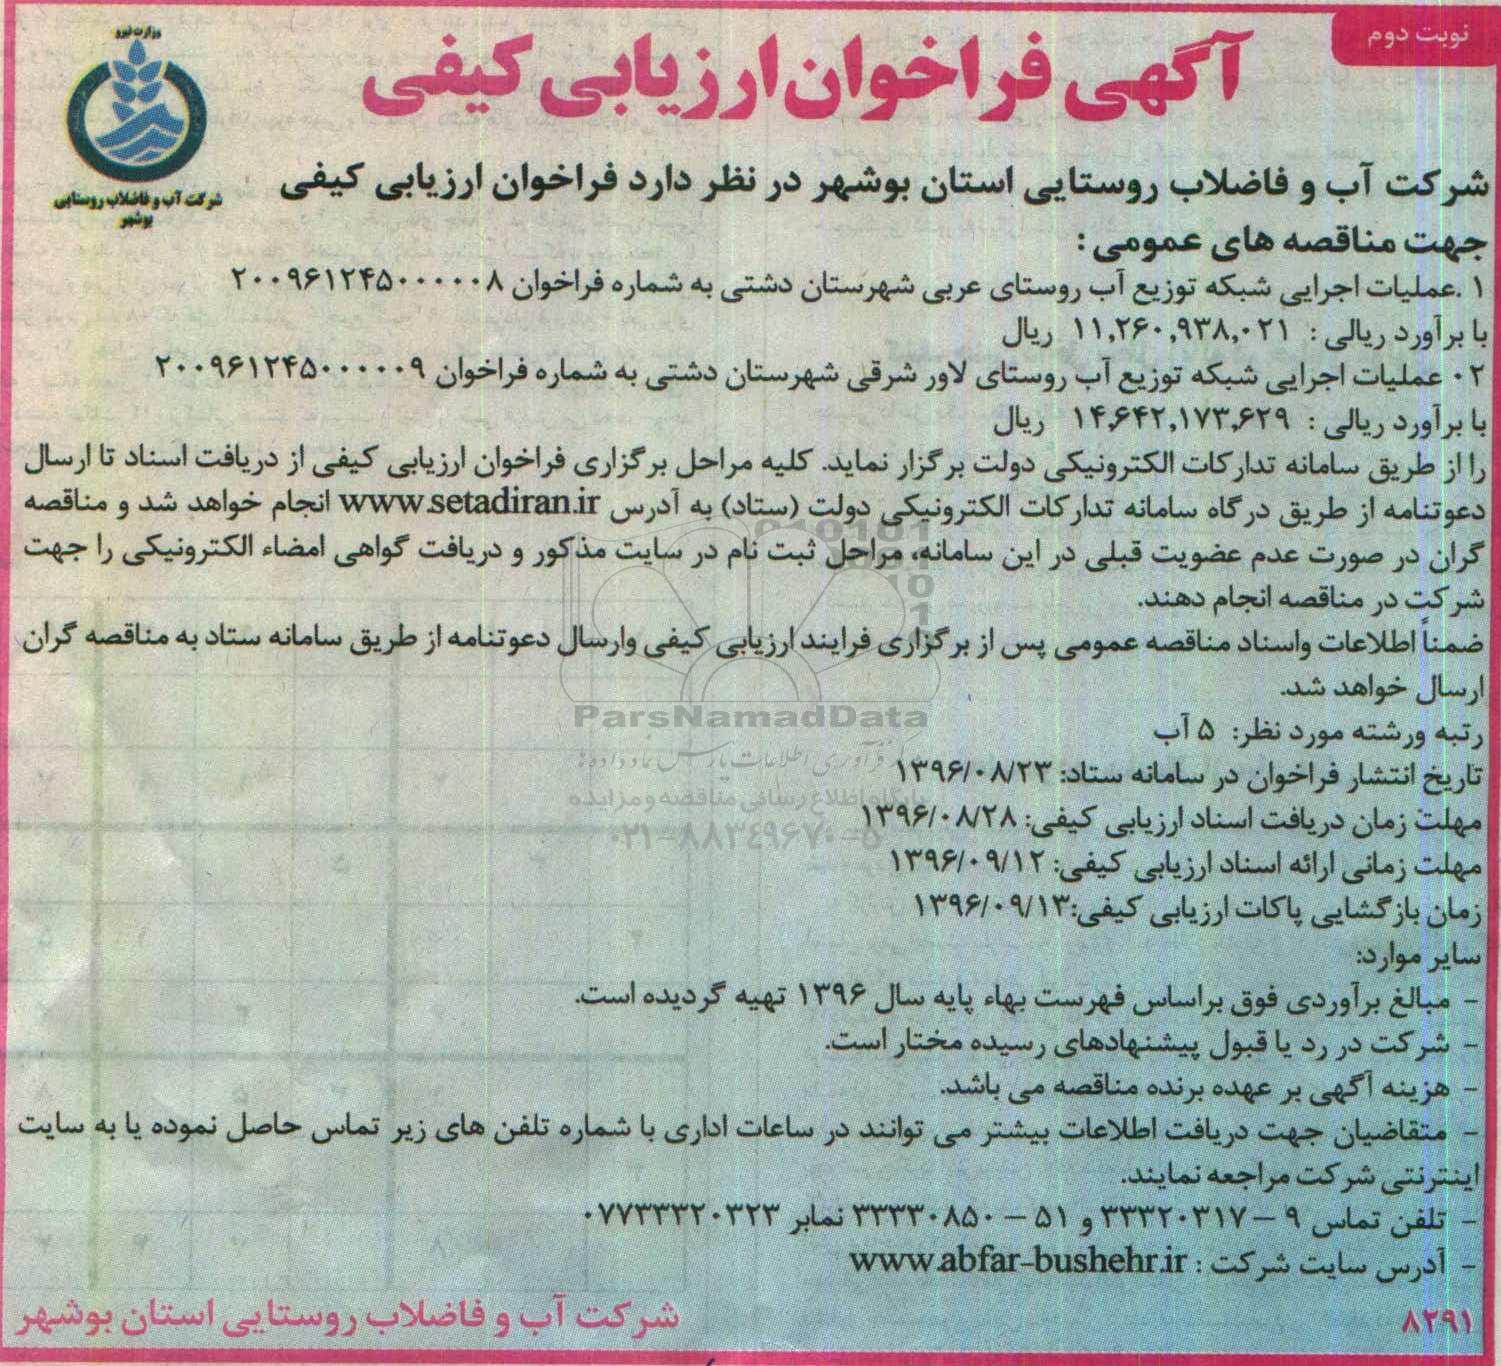 نوبت دوم
آگهی فراخوان ارزیابی کیفی
وزارت نیرو
شرکت آب و فاضلاب روستایی
بوشهر
شرکت آب و فاضلاب روستایی استان بوشهر در نظر دارد فراخوان ارزیابی کیفی
جهت مناقصه های عمومی :
۱ .عملیات اجرایی شبکه توزیع آب روستای عربی شهرستان دشتی به شماره فراخوان ۲۰۰۹۶۱۲۴۵۰۰۰۰۰۸
با برآورد ریالی : ۱۱,۲۶۰,۹۳۸,۰۲۱ ریال
۰۲ عملیات اجرایی شبکه توزیع آب روستای لاور شرقی شهرستان دشتی به شماره فراخوان ۲۰۰۹۶۱۲۴۵۰۰۰۰۰۹
با برآورد ریالی : ۱۴,۶۴۲,۱۷۳,۶۲۹ ریال
را از طریق سامانه تدارکات الکترونیکی دولت برگزار نماید. کلیه مراحل برگزاری فراخوان ارزیابی کیفی از دریافت اسناد تا ارسال
دعوتنامه از طریق درگاه سامانه تدارکات الکترونیکی دولت (ستاد) به آدرس www.setadiran.ir انجام خواهد شد و مناقصه
گران در صورت عدم عضویت قبلی در این سامانه، مراحل ثبت نام در سایت مذکور و دریافت گواهی امضاء الکترونیکی را جهت
شرکت در مناقصه انجام دهند.
ضمناً اطلاعات واسناد مناقصه عمومی پس از برگزاری فرایند ارزیابی کیفی وارسال دعوتنامه از طریق سامانه ستاد به مناقصه گران
ارسال خواهد شد.
ParsNamadData
رتبه ورشته مورد نظر: ۵ آب
تاریخ انتشار فراخوان در سامانه ستاد: ۱۳۹۶/۰۸/۲۳
پایگاه اطلاع رسانی مناقصه و مزایده
مهلت زمان دریافت اسناد ارزیابی کیفی: ۱۳۹۶/۰۸/۲۸
۰۲۱-۸۸۳۴۹۶۷۰-۵
مهلت زمانی ارائه اسناد ارزیابی کیفی: ۱۳۹۶/۰۹/۱۲
زمان بازگشایی پاکات ارزیابی کیفی:۱۳۹۶/۰۹/۱۳
سایر موارد:
- مبالغ برآوردی فوق براساس فهرست بهاء پایه سال ۱۳۹۶ تهیه گردیده است.
- شرکت در رد یا قبول پیشنهادهای رسیده مختار است.
- هزینه آگهی بر عهده برنده مناقصه می باشد.
- متقاضیان جهت دریافت اطلاعات بیشتر می توانند در ساعات اداری با شماره تلفن های زیر تماس حاصل نموده یا به سایت
اینترنتی شرکت مراجعه نمایند.
- تلفن تماس ۹ – ۳۳۳۲۰۳۱۷ و ۵۱ – ۳۳۳۳۰۸۵۰ نمابر ۰۷۷۳۳۳۲۰۳۲۳
- آدرس سایت شرکت : www.abfar-bushehr.ir
۸۲۹۱
شرکت آب و فاضلاب روستایی استان بوشهر